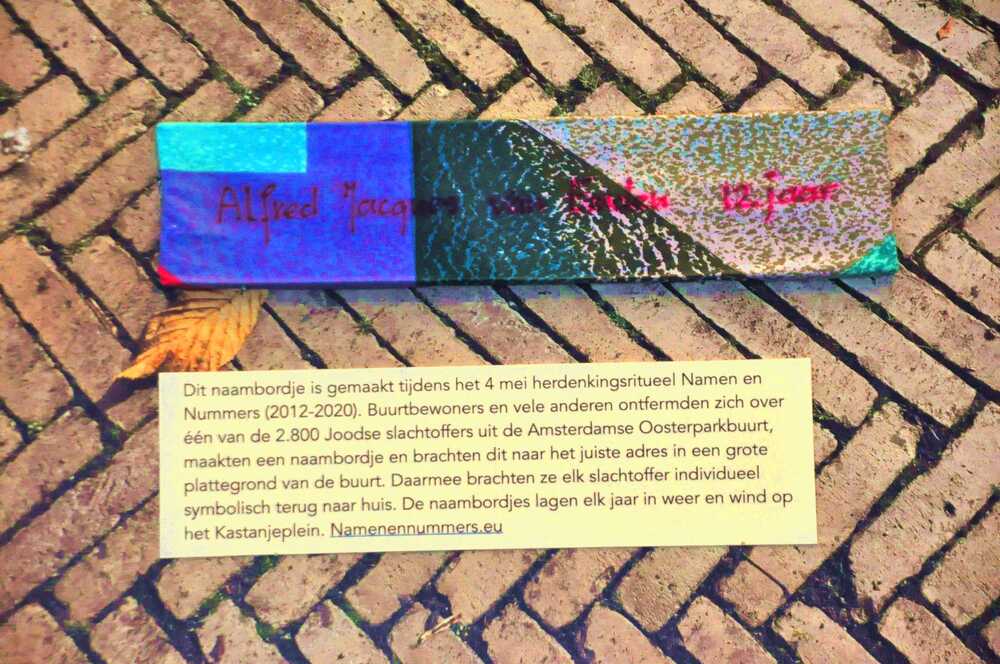 Alfred Jacques van 12 jaar
Dit naambordje is gemaakt tijdens het 4 mei herdenkingsritueel Namen en
Nummers (2012-2020). Buurtbewoners en vele anderen ontfermden zich over
één van de 2.800 Joodse slachtoffers uit de Amsterdamse Oosterparkbuurt,
maakten een naambordje en brachten dit naar het juiste adres in een grote
plattegrond van de buurt. Daarmee brachten ze elk slachtoffer individueel
symbolisch terug naar huis. De naambordjes lagen elk jaar in weer en wind op
het Kastanjeplein. Namenennummers.eu